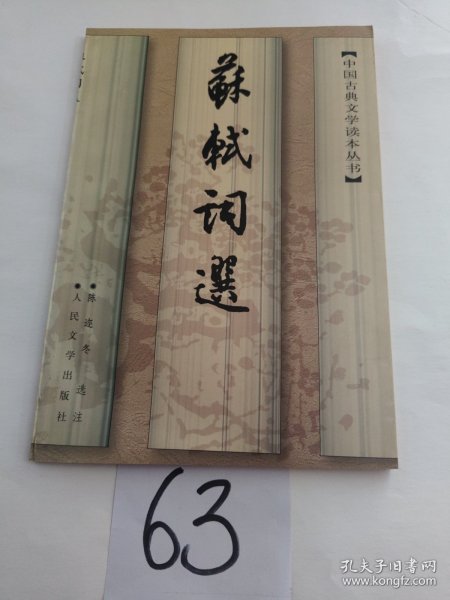 【中国古典文学读本丛书】
蘇軾词選
●陈迩冬 选注
●人民文学出版社
63
孔夫子旧书网
www.kongfz.com